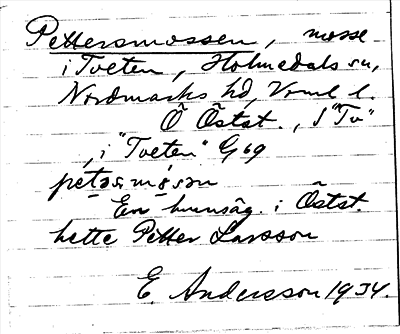 Pettersmossen, mosse
i Tveten, Holmedals sn,
Nordmarks hd, Vrml l.
Ö Östst., S "Tv"
i "Tveten" G 69
En hemsäg. i Östst.
hette Petter Larsson
E. Andersson 1934.